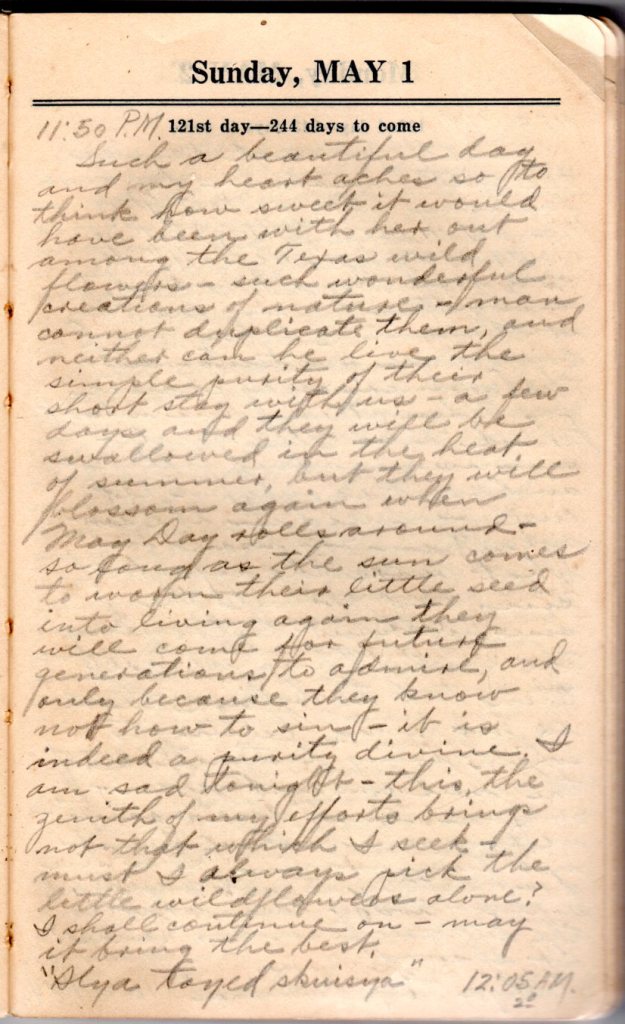 Sunday, MAY 1
11:50 P.M. 121st day—244 days to come
Such a beautiful day
and my heart aches so to
think how sweet it would
have been with her out
among the Texas wild
flowers - such wonderful
creations of nature - man
cannot duplicate them, and
neither can he live the
simple purity of their
short stay with us - a few
days and they will be
swallowed in the heat
of summer, but they will
blossom again when
May Day rolls around -
so long as the sun comes
to warm their little seed
into living again they
will come for future
generations to admire, and
only because they know
not how to sin - it is
indeed a purity divine. I
am sad tonight - this, the
zenith of my efforts brings
not that which I seek -
must I always pick the
little wildflowers alone?
I shall continue on - may
it bring the best.
12:05 A.M.